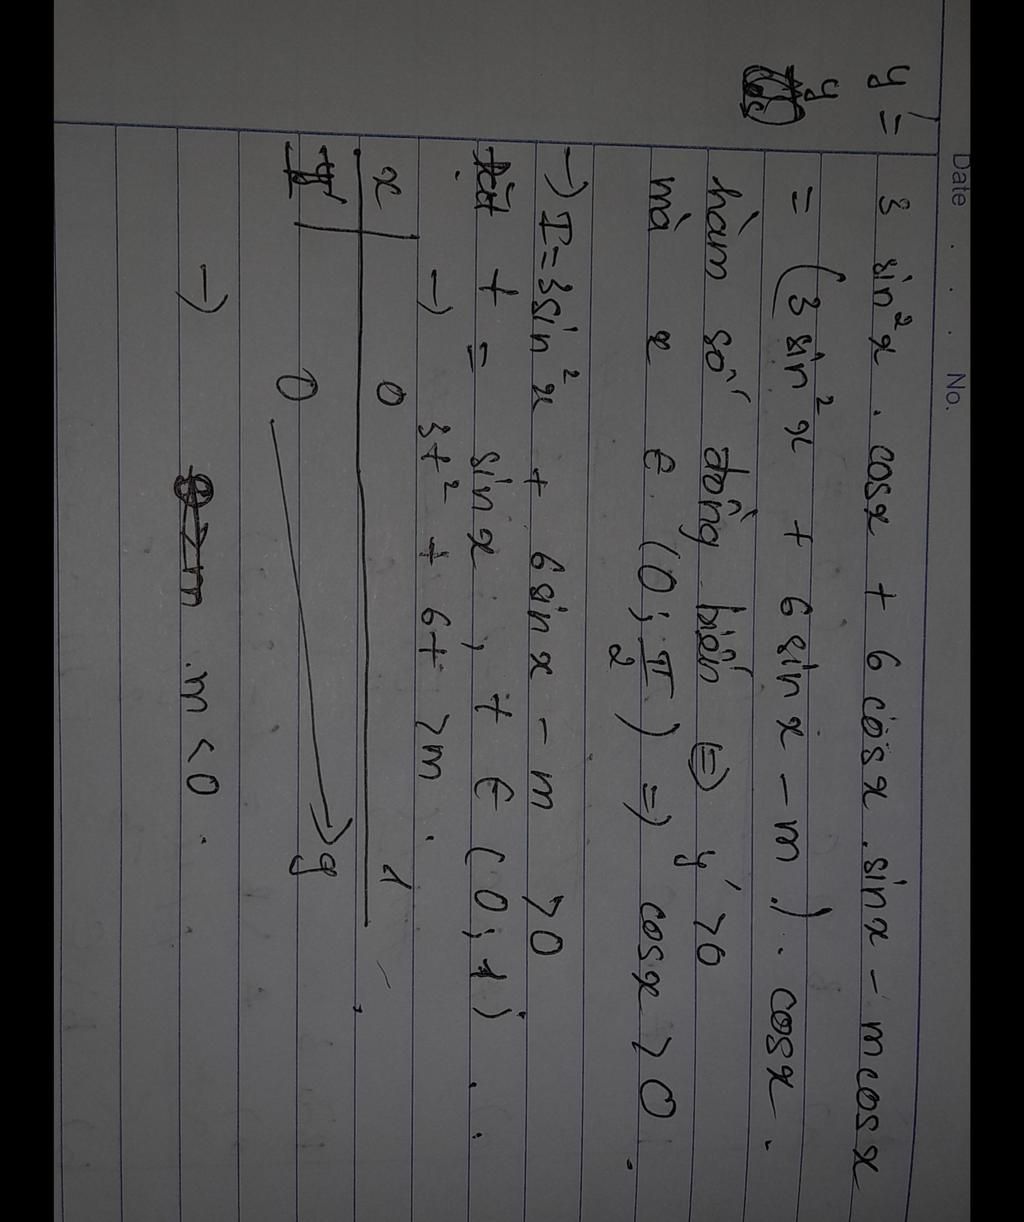 Date . . . . No.
y' = 3 sin²x . cosx + 6 cosx . sinx - mcosx
y
= (3 sin²x + 6 sinx - m) . cosx .
hàm số đồng biến ⇔ y' >0
mà x ∈ (0; π/2) => cosx > 0 .
-) I = 3sin²x + 6 sinx - m >0
đặt t = sinx , t ∈ (0; 1) .
-) 3t² + 6t >m .
x 0 1
0 9
-) m < 0 .